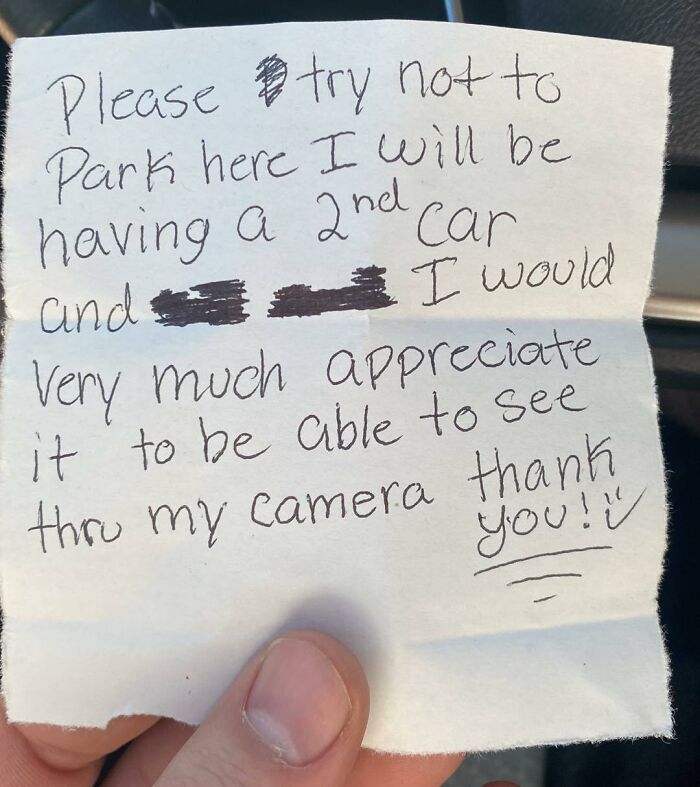 Please try not to
Park here I will be
having a 2nd car
and I would
Very much appreciate
it to be able to see
thru my camera thank
you!